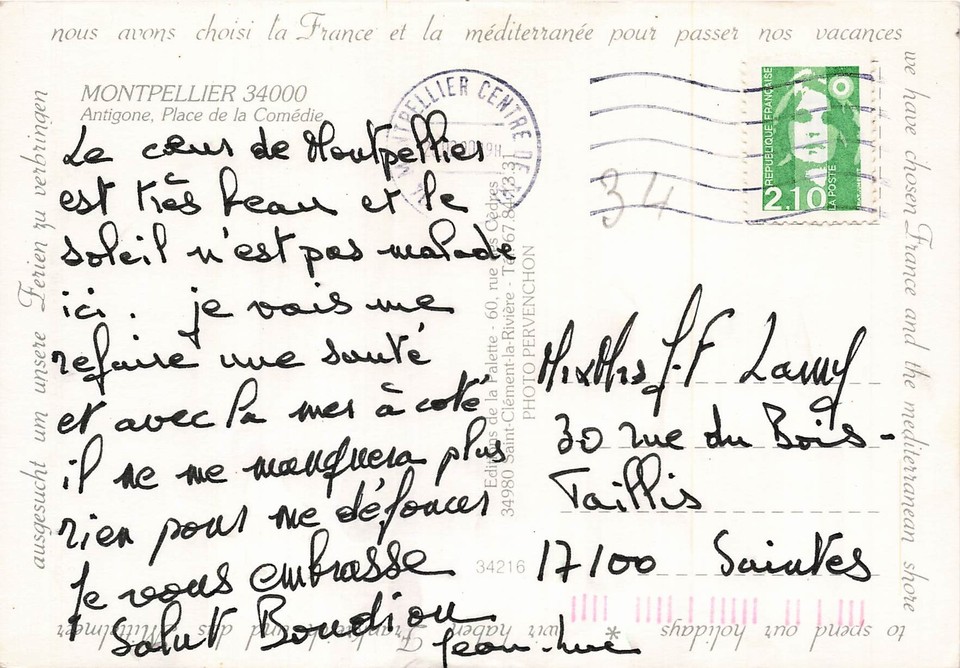 nous avons choisi la France et la méditerranée pour passer nos vacances
we have chosen France and the mediterranean shore
to spend our holidays * wir haben
ausgesucht um unsere Ferien zu verbringen
MONTPELLIER 34000
Antigone, Place de la Comédie
Le cœur de Montpellier
est très beau et le
soleil n'est pas malade
ici. je vais me
refaire une santé
et avec la mer à coté
il ne me manquera plus
rien pour me défoncer
Je vous embrasse
Salut Boudiou
Jean-Luc
Editions de la Palette - 60, rue des Cèdres
34980 Saint-Clément-la-Rivière - Tél. 67.84.13.31
PHOTO PERVENCHON
34216
MONTPELLIER CENTRE DE
34
REPUBLIQUE FRANÇAISE
2,10
LA POSTE
Mr & Mrs J.F Lamy
30 rue du Bois-
Taillis
17100 Saintes